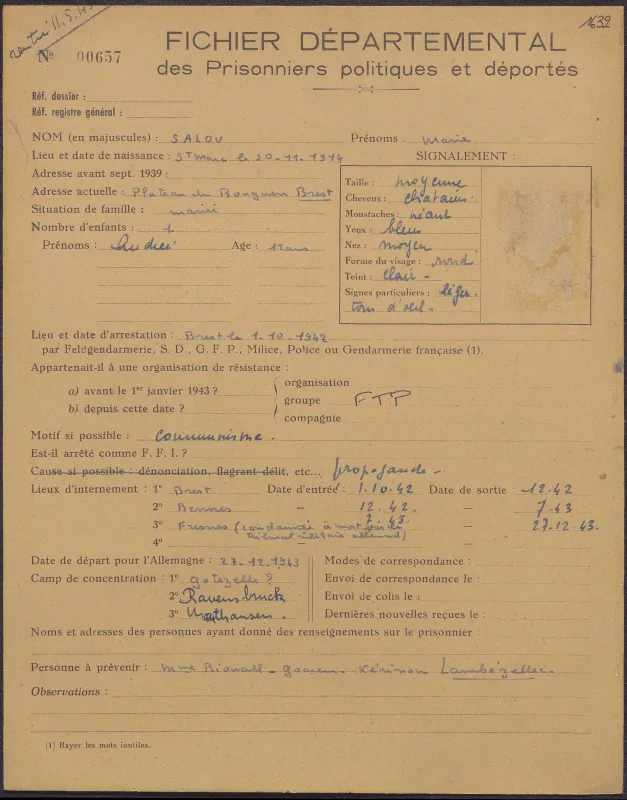 rentré 11.5.45
1632
Nº 00657
FICHIER DÉPARTEMENTAL
des Prisonniers politiques et déportés
Réf. dossier :
Réf. registre général :
NOM (en majuscules) : SALOU Prénoms : Marie
Lieu et date de naissance : St Marc le 20-11-1914
SIGNALEMENT :
Adresse avant sept. 1939 :
Adresse actuelle : Plateau du Bouguen Brest
Situation de famille : mariée
Nombre d'enfants : 1
Prénoms : André Age : 12 ans
Taille : moyenne
Cheveux : chatains
Moustaches : néant
Yeux : bleus
Nez : moyen
Forme du visage : rond
Teint : clair -
Signes particuliers : léger
tour d'oeil.
Lieu et date d'arrestation : Brest le 1-10-1942
par Feldgendarmerie, S. D , G. F. P., Milice, Police ou Gendarmerie française (1).
Appartenait-il à une organisation de résistance :
a) avant le 1er janvier 1943 ?
b) depuis cette date ?
organisation
groupe FTP
compagnie
Motif si possible : communisme.
Est-il arrêté comme F. F. I. ?
Cause si possible : dénonciation, flagrant délit, etc... propagande -
Lieux d'internement : 1º Brest Date d'entrée : 1.10.42 Date de sortie - 12.42
2º Rennes - 12.42. - 7.43
3º Fresnes (condamnée à mort par le tribunal militaire allemand) 7.43. - 27.12.43.
4º - -
Date de départ pour l'Allemagne : 27-12-1943
Camp de concentration : 1º
2º Ravensbruck
3º Mathausen.
Modes de correspondance :
Envoi de correspondance le :
Envoi de colis le :
Dernières nouvelles reçues le :
Noms et adresses des personnes ayant donné des renseignements sur le prisonnier :
Personne à prévenir : Mme Lambézellec.
Observations :
(1) Rayer les mots inutiles.